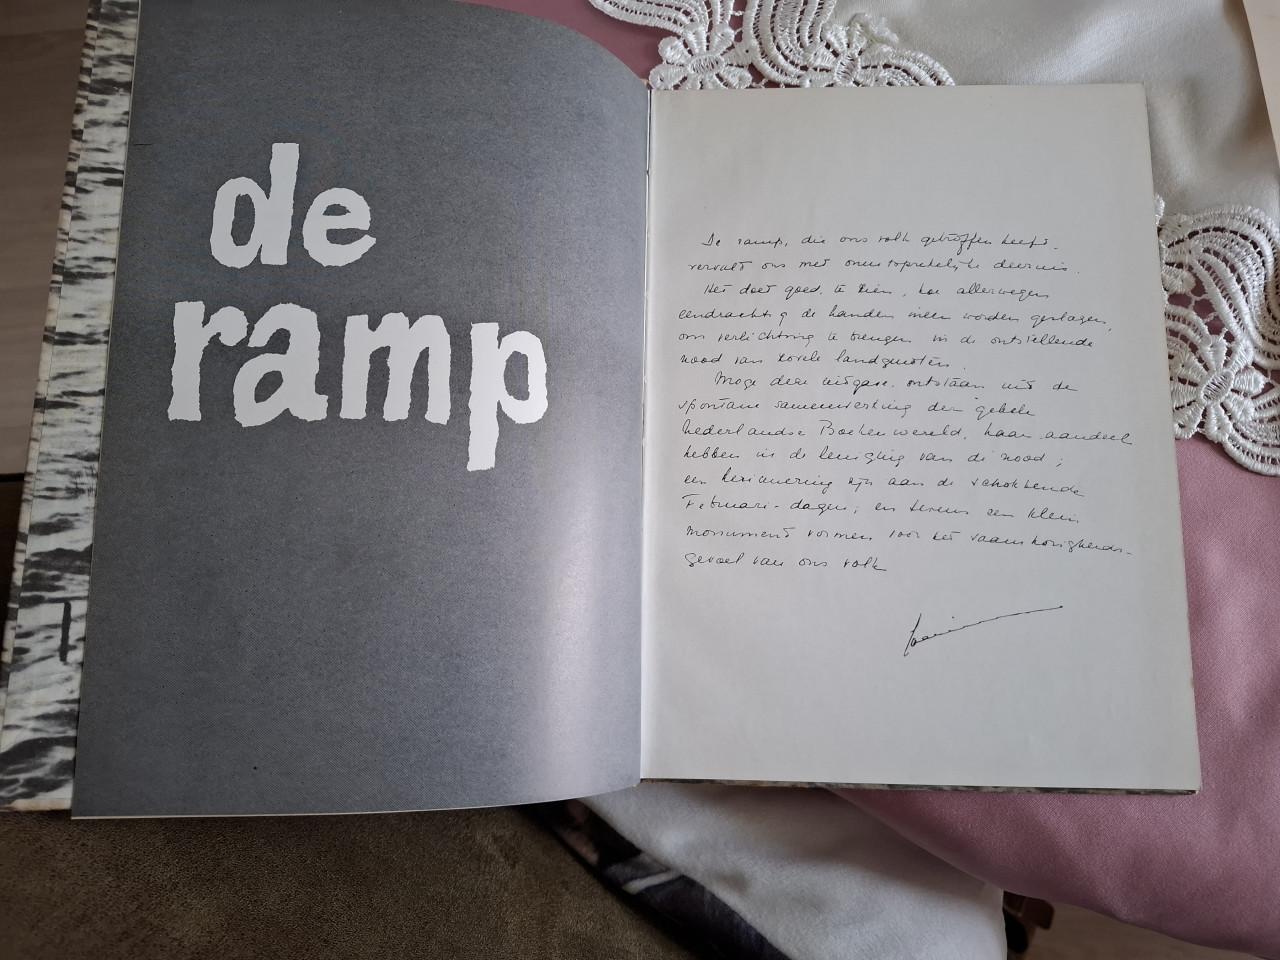 de
ramp
De ramp, die ons volk getroffen heeft,
vervult ons met onuitsprekelijke deernis.
Het doet goed, te zien, hoe allerwegen
eendrachtig de handen ineen worden geslagen,
om verlichting te brengen in de ontstellende
nood van zovele landgenoten.
Moge deze uitgave, ontstaan uit de
spontane samenwerking der gehele
Nederlandse Boekenwereld, haar aandeel
hebben in de leniging van de nood;
een herinnering zijn aan de schokkende
Februari-dagen; en tevens een klein
monument vormen voor het saamhorigheids-
gevoel van ons volk